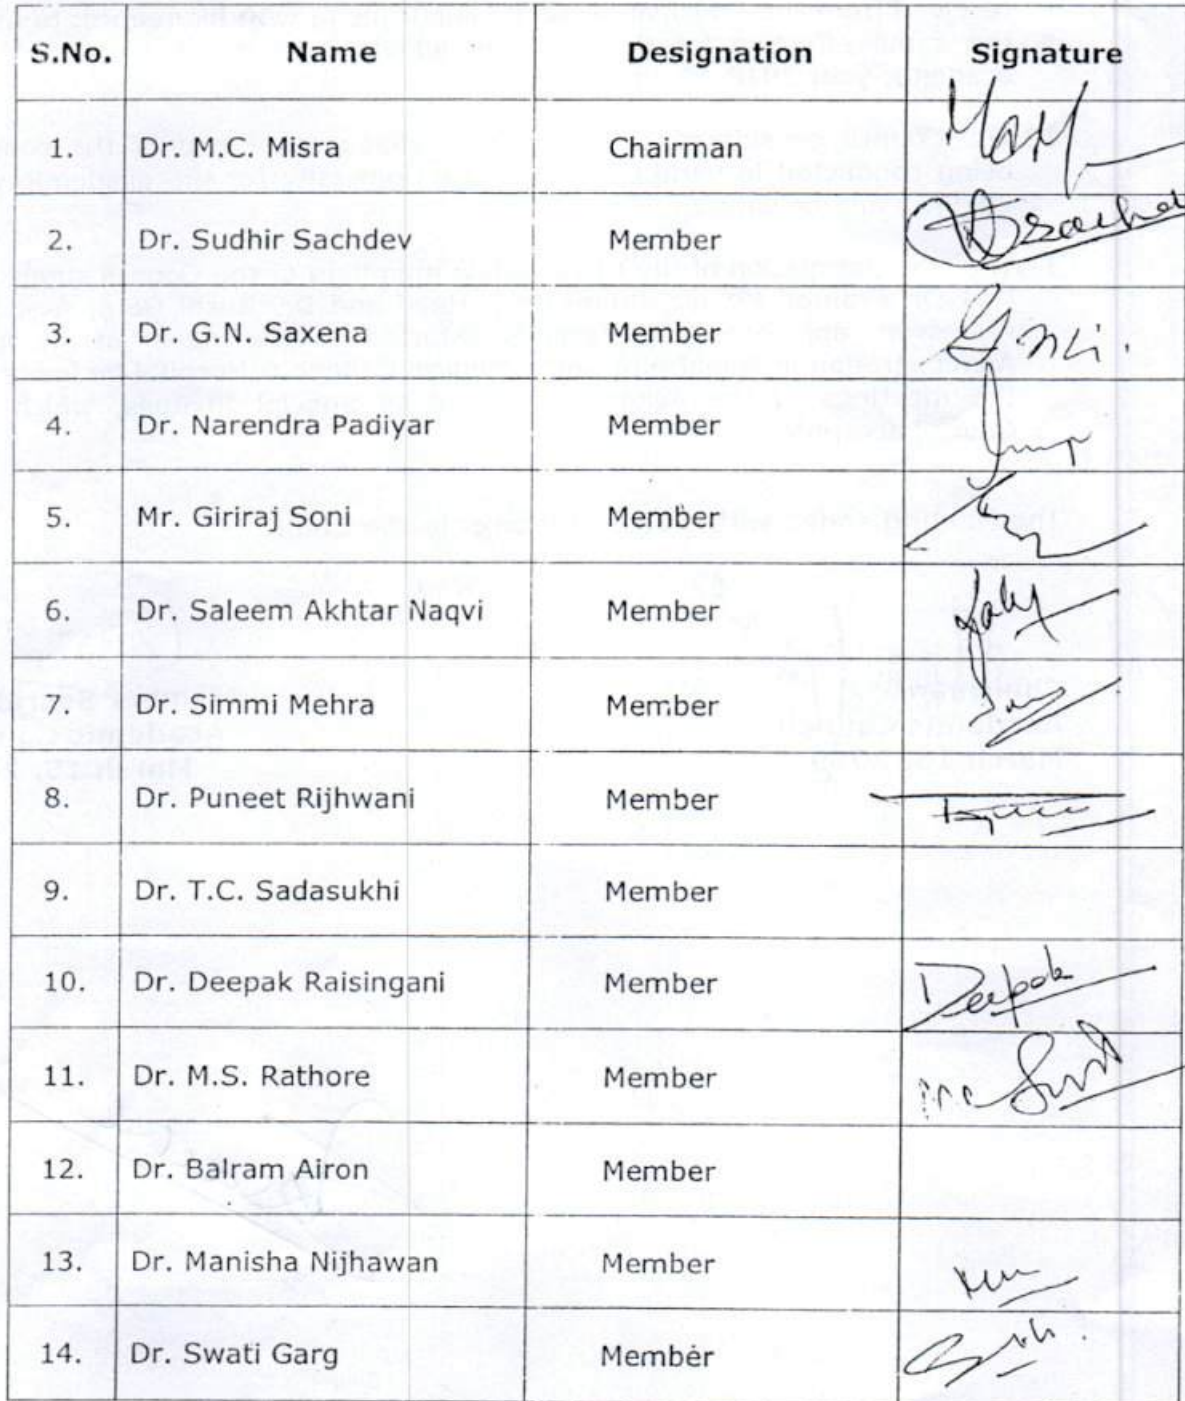 S.No. Name Designation Signature
1. Dr. M.C. Misra Chairman
2. Dr. Sudhir Sachdev Member
3. Dr. G.N. Saxena Member
4. Dr. Narendra Padiyar Member
5. Mr. Giriraj Soni Member
6. Dr. Saleem Akhtar Naqvi Member
7. Dr. Simmi Mehra Member
8. Dr. Puneet Rijhwani Member
9. Dr. T.C. Sadasukhi Member
10. Dr. Deepak Raisingani Member Deepak
11. Dr. M.S. Rathore Member
12. Dr. Balram Airon Member
13. Dr. Manisha Nijhawan Member
14. Dr. Swati Garg Member